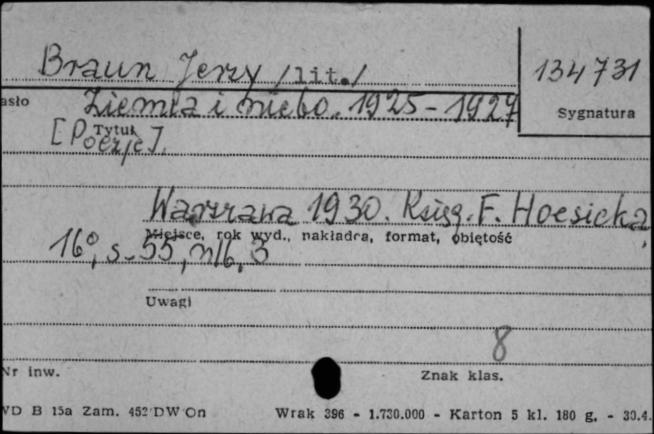 Braun Jerzy /lit./
134731
asło
Ziemia i niebo. 1925-1927
Sygnatura
Tytuł
[Poezje].
Warszawa 1930. Księg. F. Hoesicka,
Miejsce, rok wyd., nakładca, format, objętość
16°, s. 55, nlb. 3
Uwagi
8
Nr inw.
Znak klas.
VD B 15a Zam. 452 DW On
Wrak 396 - 1.730.000 - Karton 5 kl. 180 g. - 30.4.